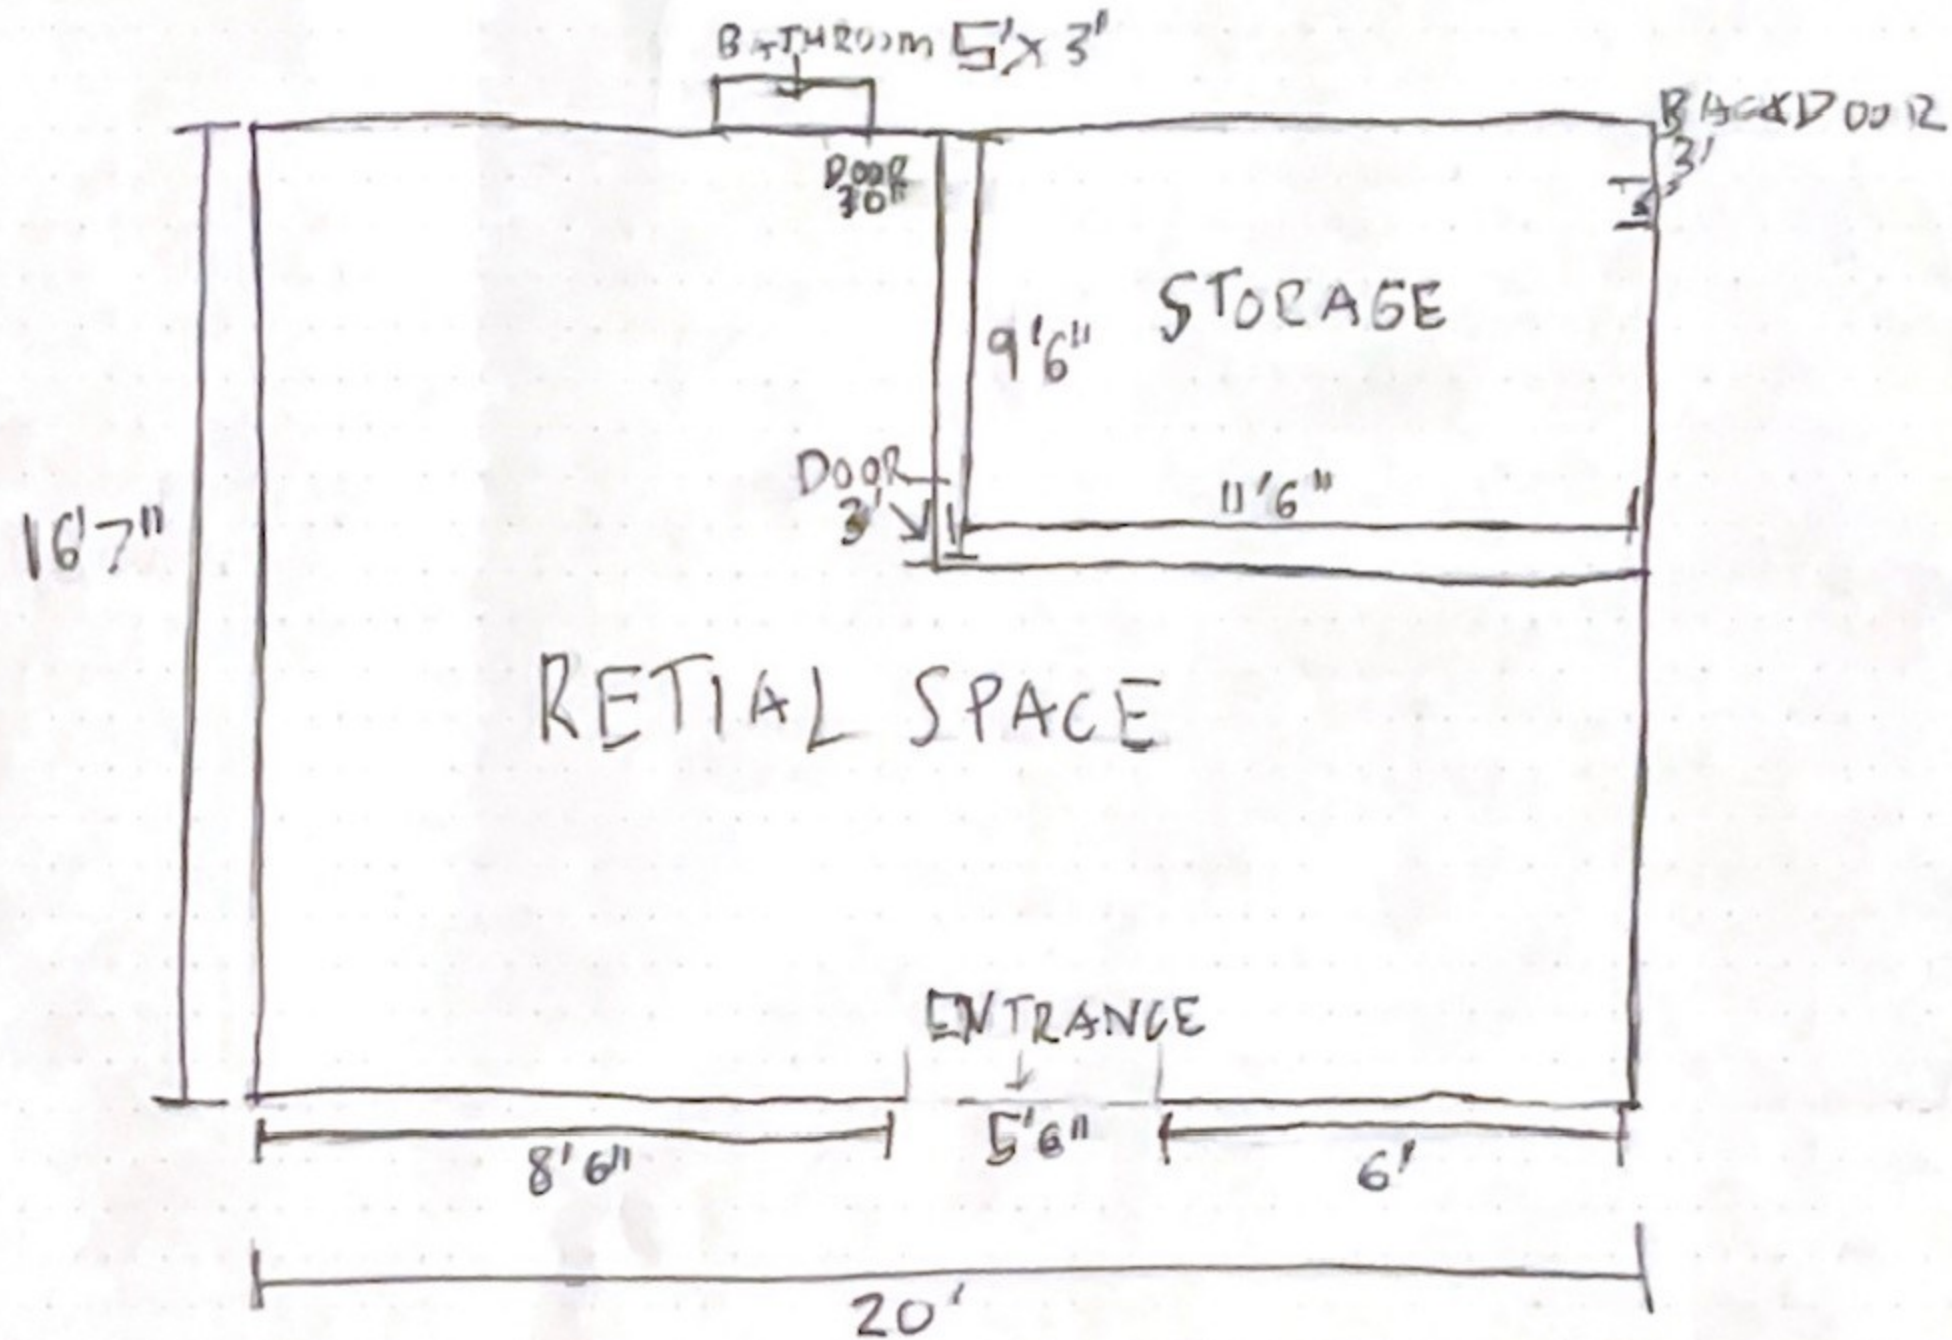 BATHROOM 5'x3'
BACKDOOR
3'
DOOR
30"
STORAGE
9'6"
DOOR
3'
11'6"
16'7"
RETIAL SPACE
ENTRANCE
5'6"
8'6"
6'
20'